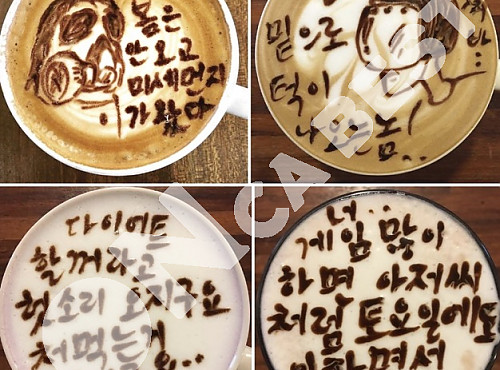 봄은
안오고
미세먼지
가왔다
밑으로
턱이
나와는놈!
다이어트
할꺼라고
헛소리 오지구요
처먹는거
너..
게임 많이
하며 아저씨
처럼 토요일에도